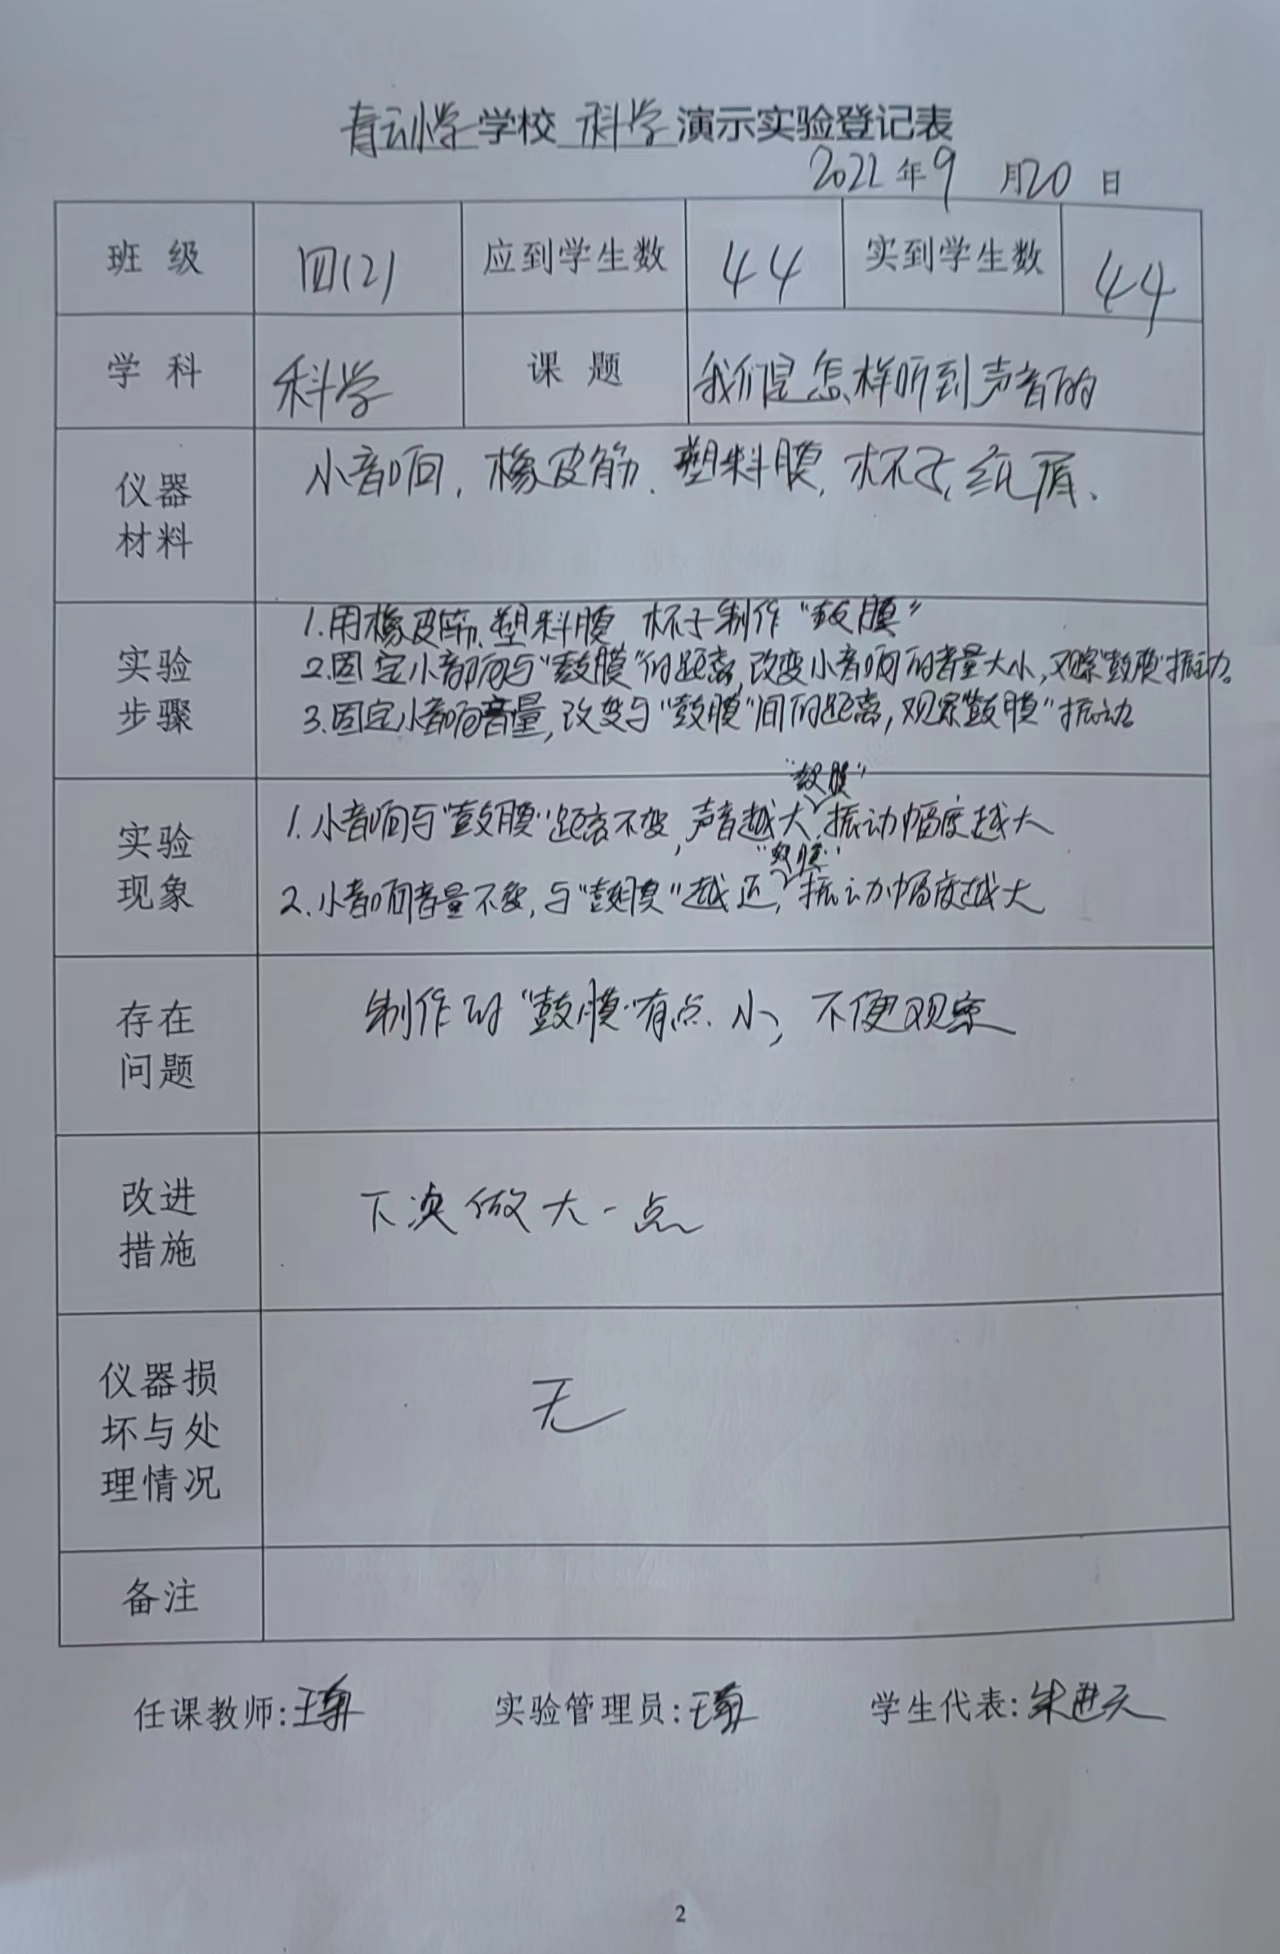 青云小学学校 科学 演示实验登记表
2022年9月20日
班 级 四(2) 应到学生数 44 实到学生数 44
学 科 科学 课 题 我们是怎样听到声音的
仪器
材料
小音响，橡皮筋、塑料膜，杯子，纸屑、
实验
步骤
1.用橡皮筋、塑料膜、杯子制作“鼓膜”
2.固定小音响与“鼓膜”的距离，改变小音响的音量大小，观察“鼓膜”振动。
3.固定小音响音量，改变与“鼓膜”间的距离，观察“鼓膜”振动
实验
现象
1.小音响与“鼓膜”距离不变，声音越大，“鼓膜”振动幅度越大
2.小音响音量不变，与“鼓膜”越近，“鼓膜”振动幅度越大
存在
问题
制作的“鼓膜”有点小，不便观察
改进
措施
下次做大一点
仪器损
坏与处
理情况
无
备注
任课教师: 实验管理员: 学生代表:
2